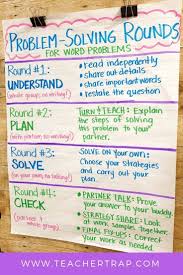 PROBLEM-SOLVING ROUNDS
FOR WORD PROBLEMS
Round #1:
UNDERSTAND
• read independently
• share out details
• share important words
• restate the question
Round #2:
PLAN
TURN & TEACH: Explain
the steps of solving
this problem to your
partner.
Round #3:
SOLVE
(on your own, no talking!)
SOLVE ON YOUR OWN:
Choose your strategies
and carry out your
plan.
Round #4:
CHECK
(partner & whole group)
• PARTNER TALK: Prove
your answer to your buddy.
• STRATEGY SHARE: Look
at work samples together.
• FINAL TOUCHES: Correct
your work as needed
WWW.TEACHERTRAP.COM